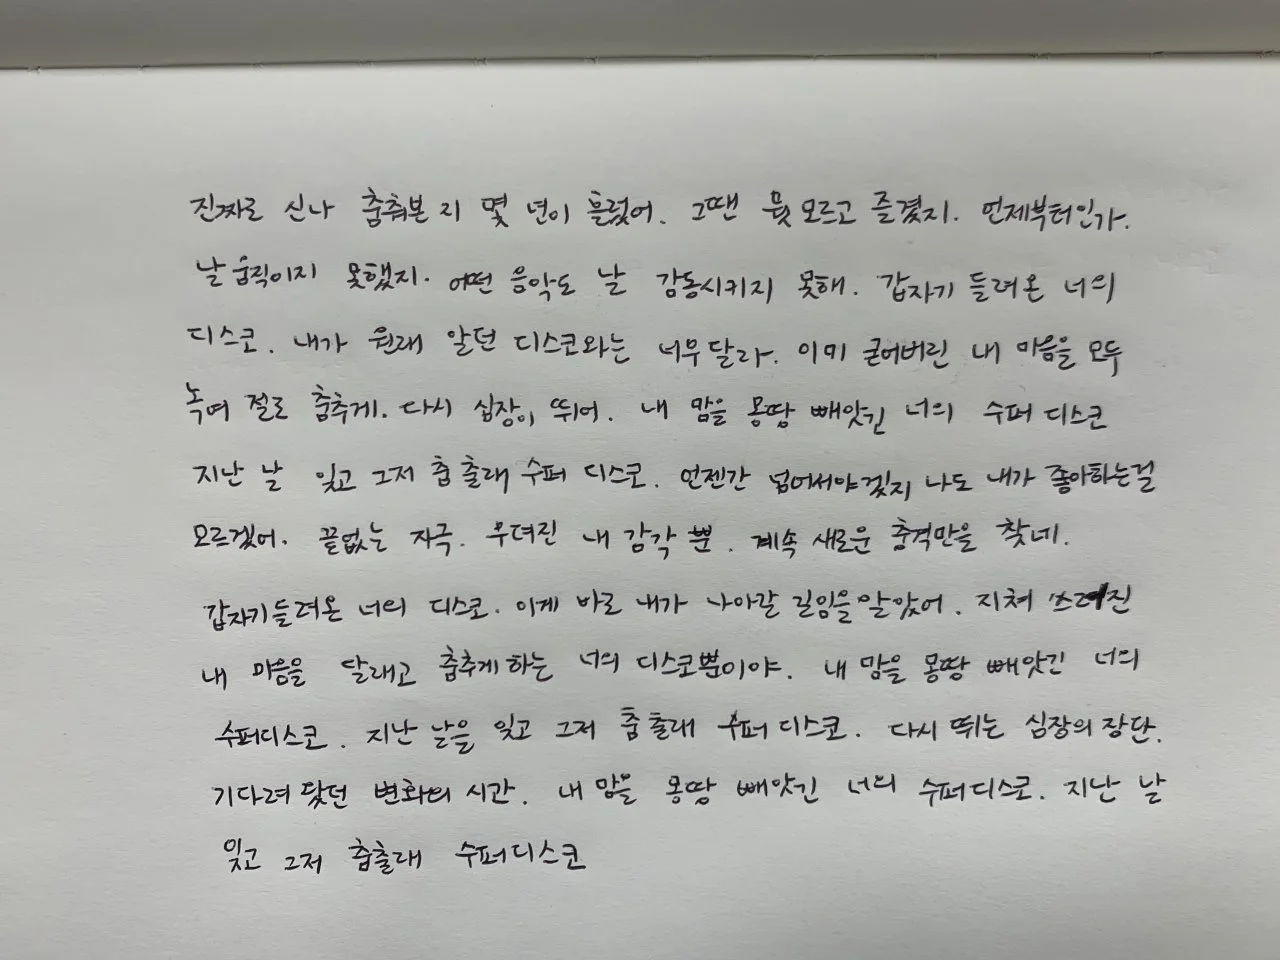 진짜로 신나 춤춰본 지 몇 년이 흘렀어. 그땐 뭣 모르고 즐겼지. 언제부터인가.
날 움직이지 못했지. 어떤 음악도 날 감동시키지 못해. 갑자기 들려온 너의
디스코. 내가 원래 알던 디스코와는 너무 달라. 이미 굳어버린 내 마음을 모두
녹여 절로 춤추게. 다시 심장이 뛰어. 내 맘을 몽땅 빼앗긴 너의 수퍼 디스코
지난 날 잊고 그저 춤출래 수퍼 디스코. 언젠간 넘어서야겠지 나도 내가 좋아하는걸
모르겠어. 끝없는 자극. 무뎌진 내 감각 뿐. 계속 새로운 충격만을 찾네.
갑자기 들려온 너의 디스코. 이게 바로 내가 나아갈 길임을 알았어. 지쳐 쓰러진
내 마음을 달래고 춤추게 하는 너의 디스코뿐이야. 내 맘을 몽땅 빼앗긴 너의
수퍼디스코. 지난 날을 잊고 그저 춤출래 수퍼 디스코. 다시 뛰는 심장의 장단.
기다려 왔던 변화의 시간. 내 맘을 몽땅 빼앗긴 너의 수퍼디스코. 지난 날
잊고 그저 춤출래 수퍼디스코